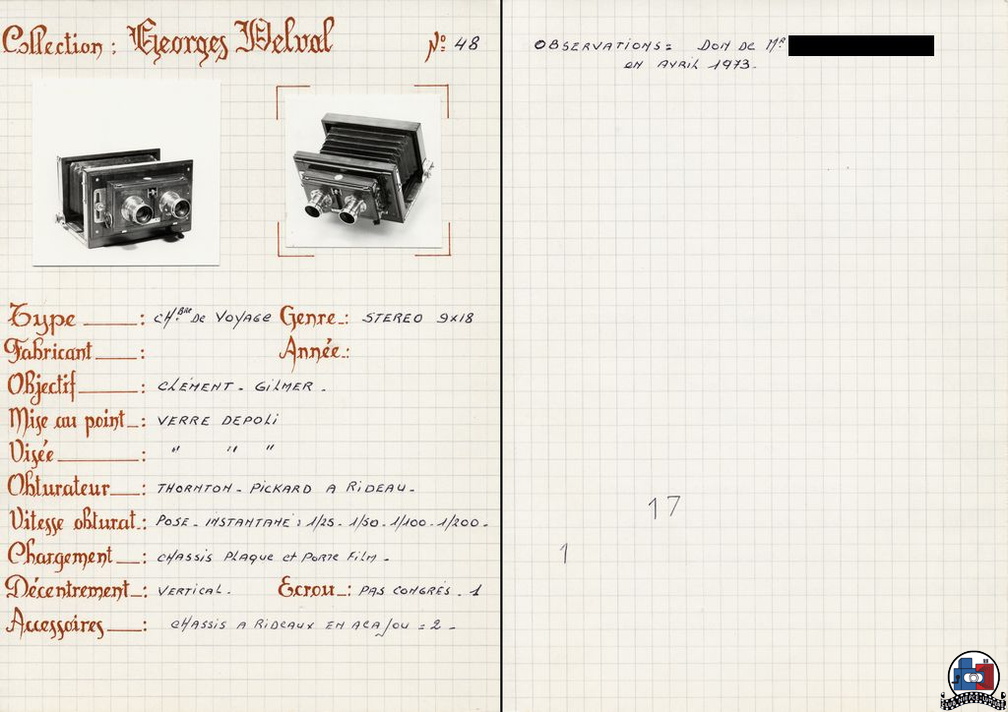 Collection : Georges Delval Nº 48
Type : CHBRE DE VOYAGE Genre : STEREO 9x18
Fabricant : Année :
Objectif : CLÉMENT - GILMER .
Mise au point : VERRE DEPOLI
Visée : " " "
Obturateur : THORNTON - PICKARD A RIDEAU .
Vitesse obturat : POSE - INSTANTANÉ : 1/25 - 1/50 - 1/100 - 1/200 .
Chargement : CHASSIS PLAQUE et PORTE FILM .
Décentrement : VERTICAL . Ecrou : PAS CONGRÉS . 1
Accessoires : CHASSIS A RIDEAUX EN ACAJOU = 2 -
OBSERVATIONS = DON DE MR
EN AVRIL 1973 .
17
1